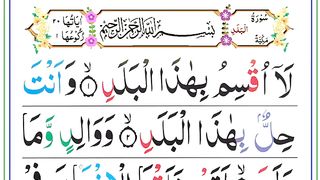 سُورَةُ الْبَلَدِ مَكِّيَّةٌ
بِسْمِ اللّٰهِ الرَّحْمٰنِ الرَّحِيْمِ
اٰيَاتُهَا ٢٠ رُكُوْعُهَا ١
لَاۤ اُقْسِمُ بِهٰذَا الْبَلَدِ ۙ﴿١﴾ وَاَنْتَ
حِلٌّۢ بِهٰذَا الْبَلَدِ ۙ﴿٢﴾ وَوَالِدٍ وَّمَا